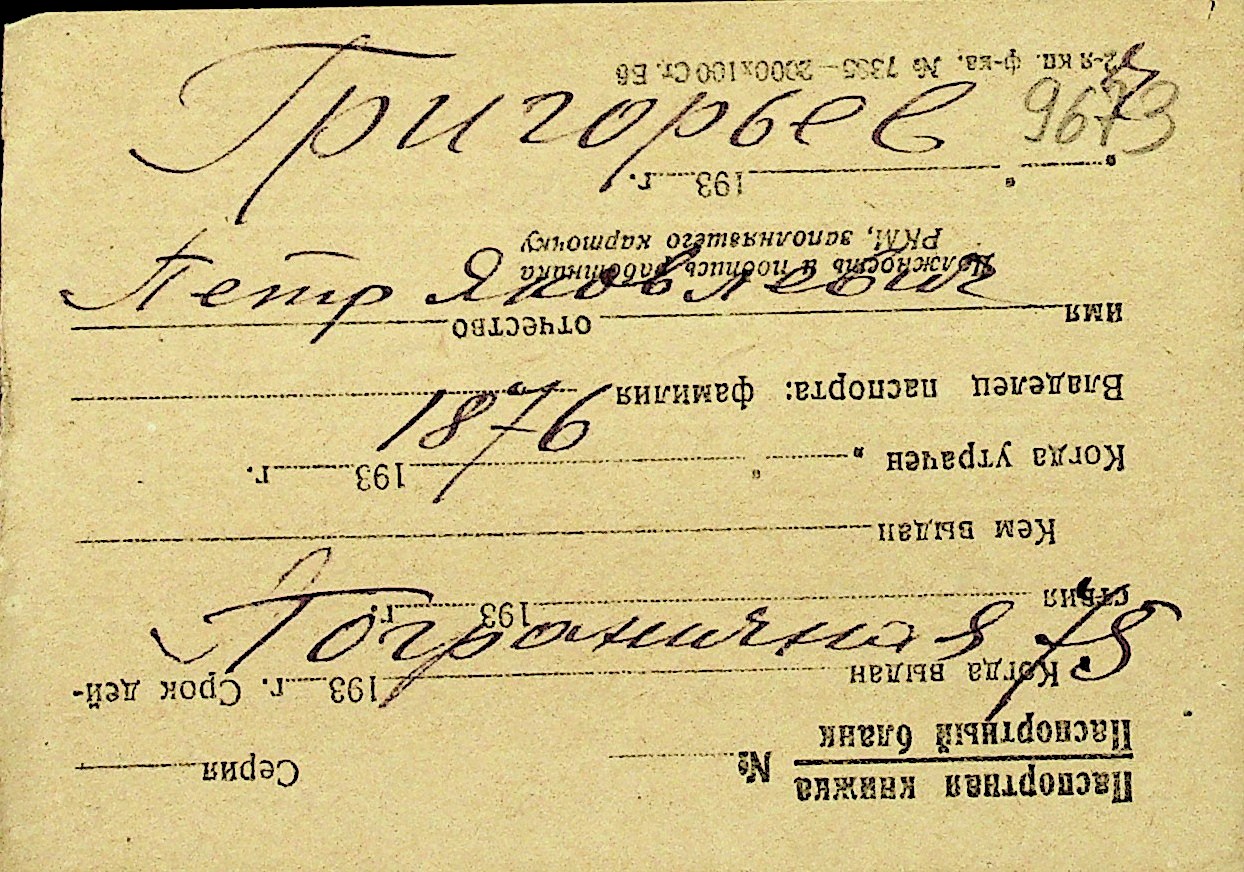 Григорьев 9673
Петр Яковлевич
1876
Пограничная 75
Паспортная книжка
Паспортный бланк № Серия
Когда выдан 193 г. Срок дей-
ствия 193 г.
Кем выдан
Когда утрачен „ “ 193 г.
Владелец паспорта: фамилия
имя отчество
Должность и подпись работника
РКМ, заполнявшего карточку
„ “ 193 г.
2-я кп. ф-ка. № 7395—2000х100 Ст.